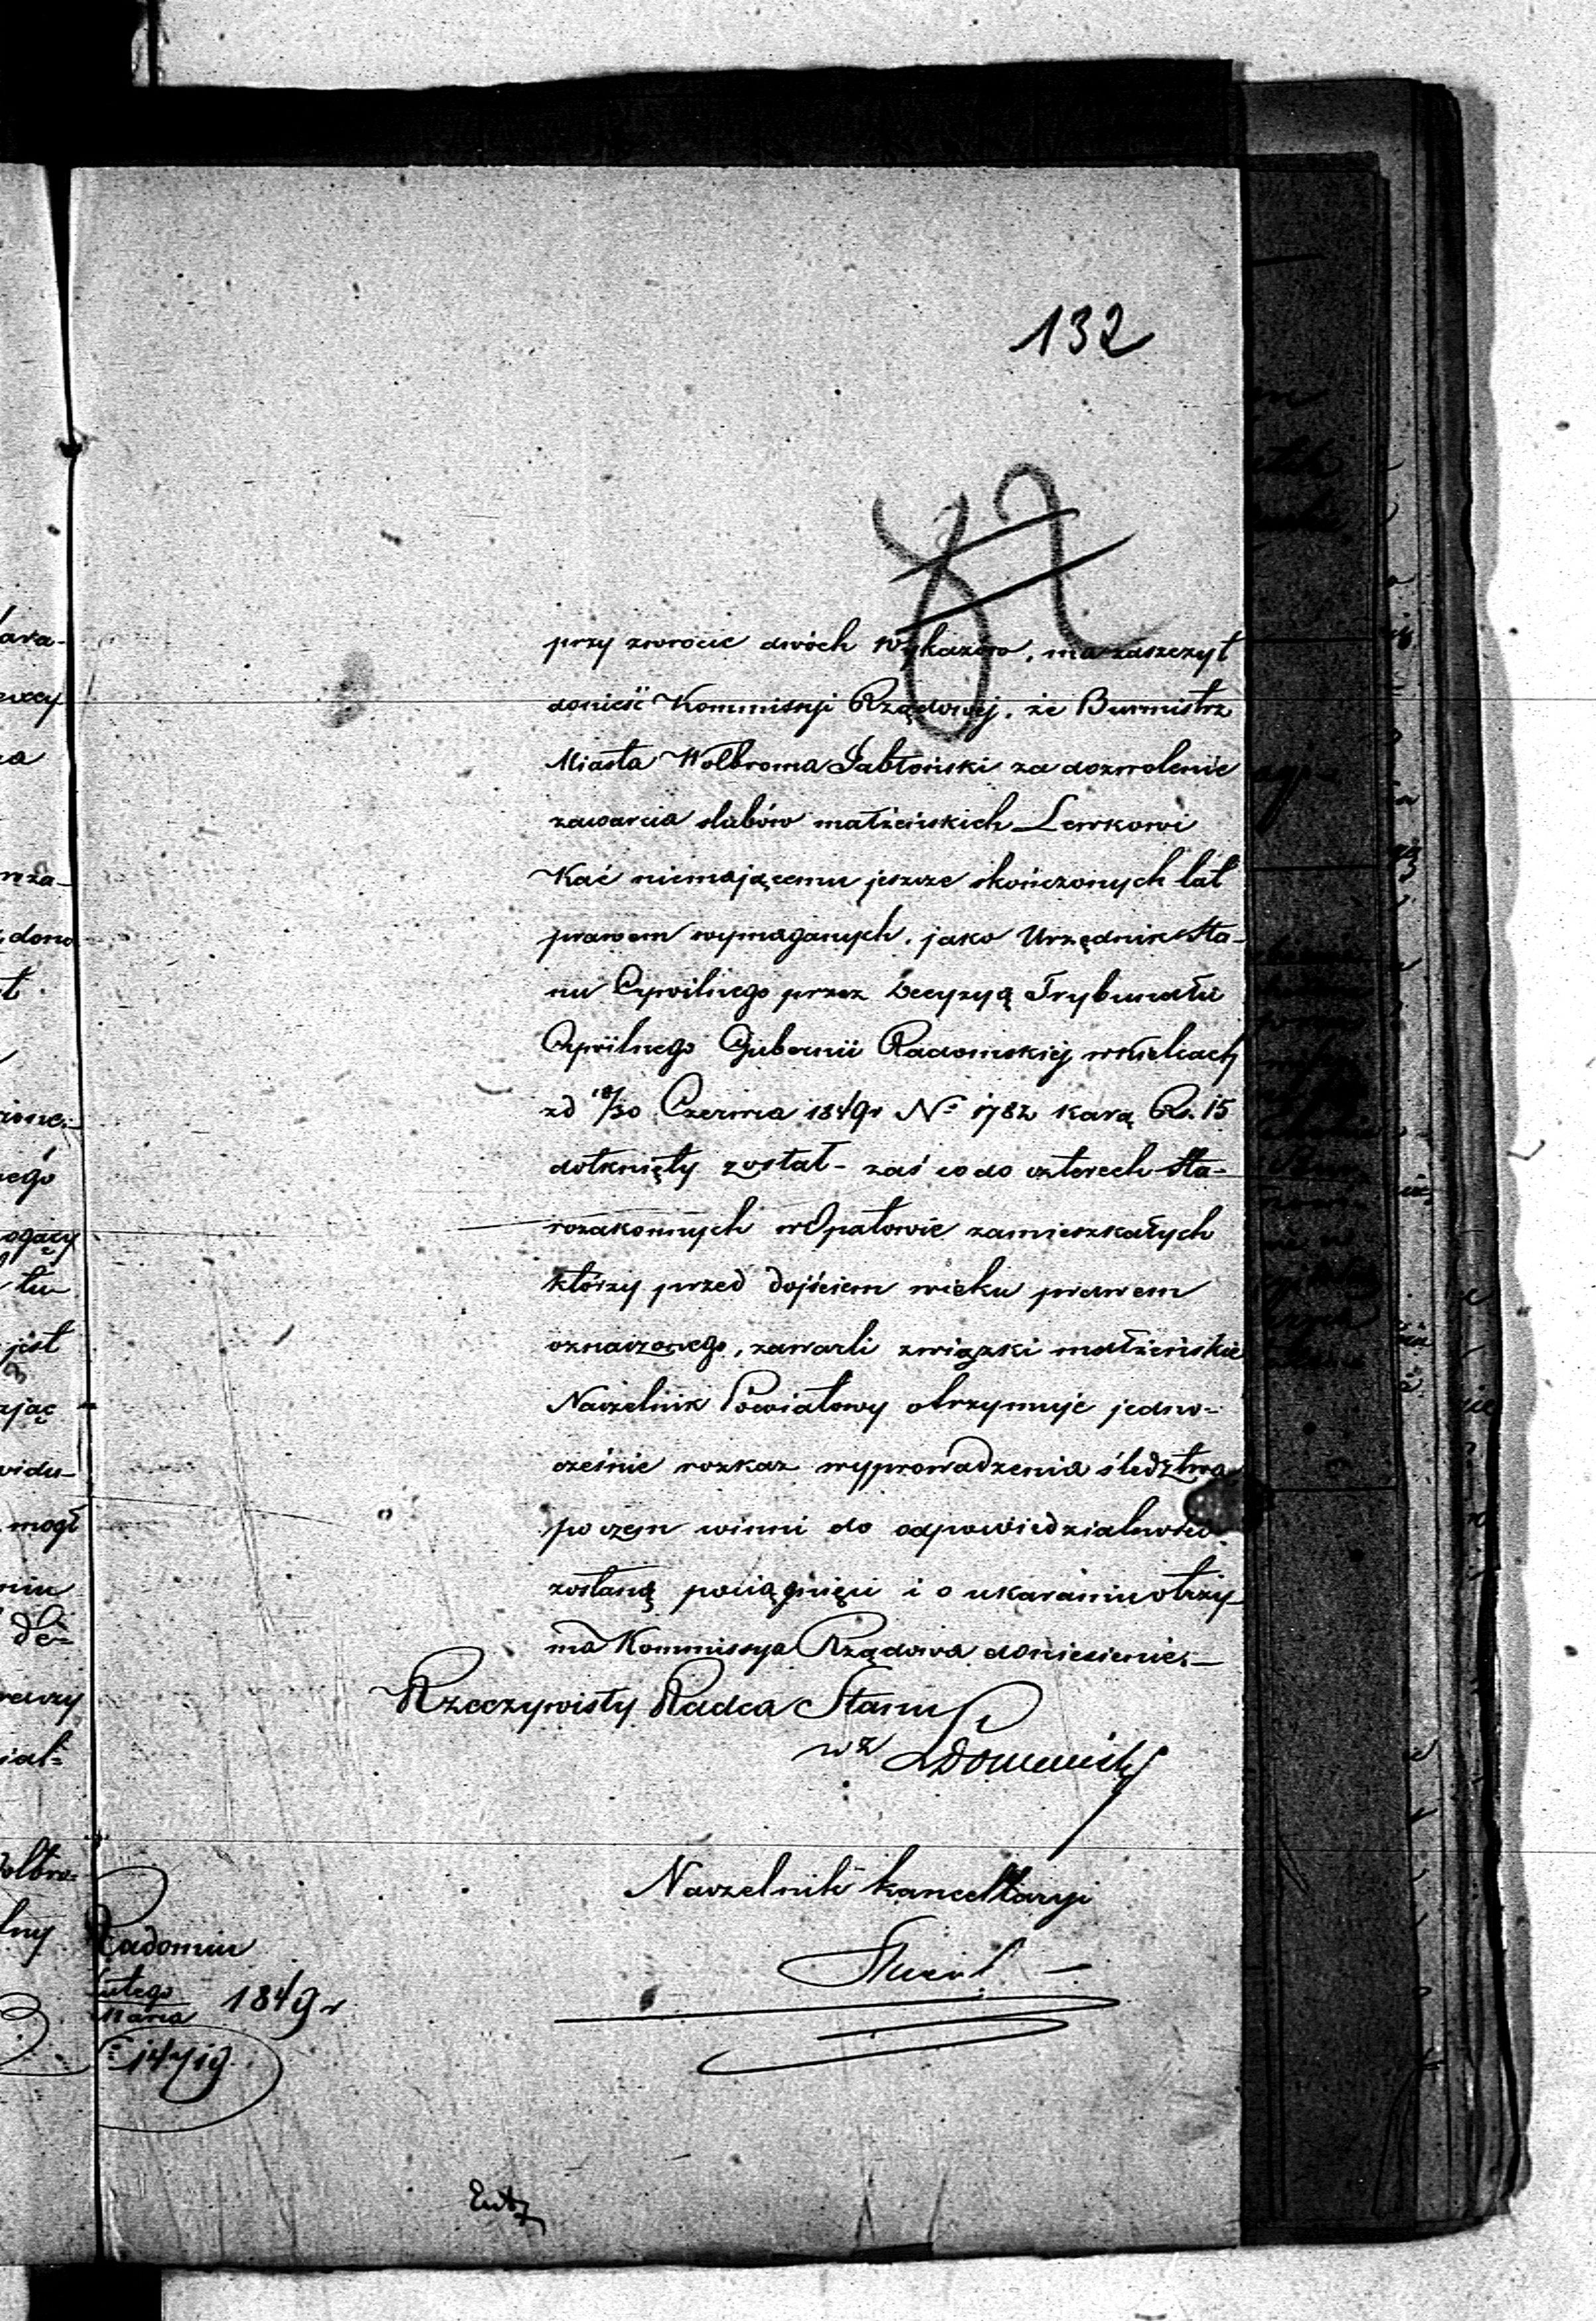 132
82
przy zwrocie dwóch Wykazów, ma zaszczyt
donieść Kommissyi Rządowej, że Burmistrz
Miasta Wolbroma Jabłoński za dozwolenie
zawarcia slubów małżeńskich Lewkowi
Kać niemającemu jeszcze skończonych lat
prawem wymaganych, jako Urzędnik Sta-
nu Cywilnego przez Decyzyą Trybunału
Cywilnego Gubernii Radomskiej w Kielcach
zd 18/30 Czerwca 1849r No 1782 karą Rs. 15
dotknięty został - zaś co do czterech Sta-
rozakonnych w Opatowie zamieszkałych
którzy przed dojściem wieku prawem
oznaczonego, zawarli związki małżeńskie
Naczelnik Powiatowy otrzymuje jedno-
cześnie rozkaz wyprowadzenia śledztwa
poczem winni do odpowiedzialności
zostaną pociągnięci i o ukaraniu otrzy-
ma Kommissya Rządowa doniesienie.—
Rzeczywisty Radca Stanu
wz
Naczelnik Kancellaryi
Radomiu
Lutego
Marca 1849 r
14719